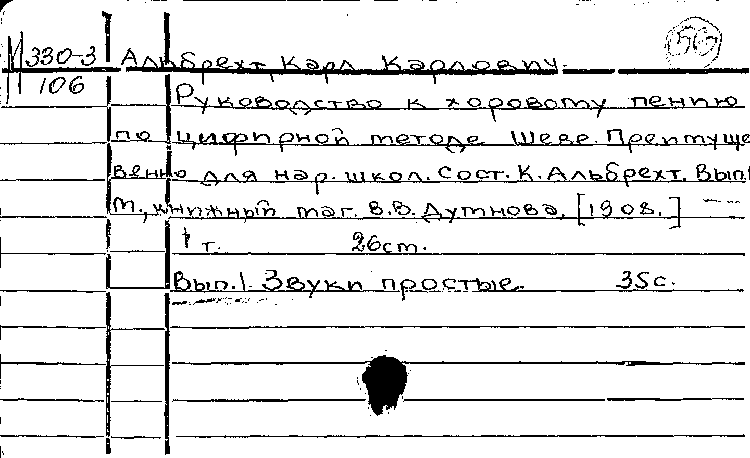 М 330-3 Альбрехт, Карл Карлович.
106
Руководство к хоровому пению
по цифирной методе Шеве. Преимуще
венно для нар. школ. Сост. К. Альбрехт. Вып.1
М., книжный маг. В.В. Думнова, [1908.]
1 т. 26 cm.
Вып.1. Звуки простые. 35 с.